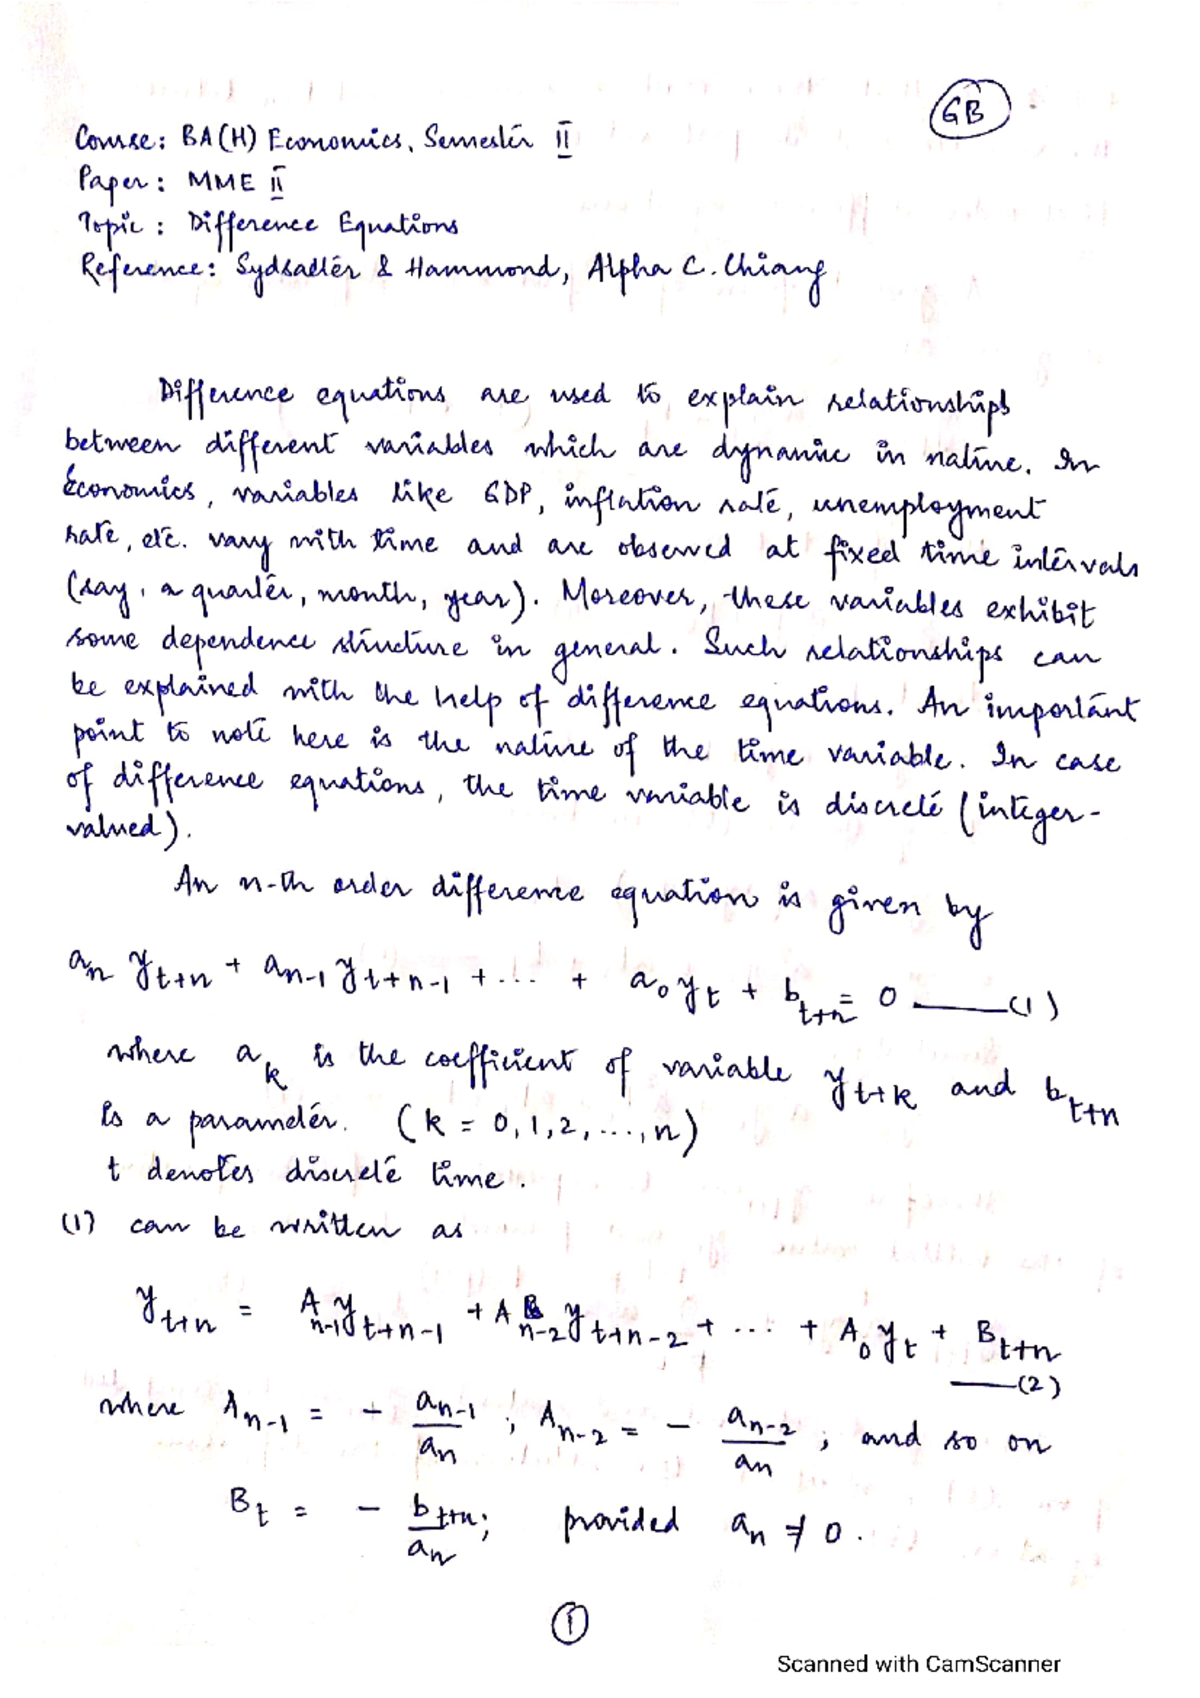 GB
Course: BA(H) Economics, Semester II
Paper: MME II
Topic: Difference Equations
Reference: Sydsaeter & Hammond, Alpha C. Chiang
Difference equations are used to explain relationships
between different variables which are dynamic in nature. In
Economics, variables like GDP, inflation rate, unemployment
rate, etc. vary with time and are observed at fixed time intervals
(say, a quarter, month, year). Moreover, these variables exhibit
some dependence structure in general. Such relationships can
be explained with the help of difference equations. An important
point to note here is the nature of the time variable. In case
of difference equations, the time variable is discrete (integer-
valued).
An n-th order difference equation is given by
a_n y_{t+n} + a_{n-1} y_{t+n-1} + ... + a_0 y_t + b_{t+n} = 0 —(1)
where a_k is the coefficient of variable y_{t+k} and b_{t+n}
is a parameter. (k = 0, 1, 2, ..., n)
t denotes discrete time.
(1) can be written as
y_{t+n} = A_{n-1} y_{t+n-1} + A_{n-2} y_{t+n-2} + ... + A_0 y_t + B_{t+n}
—(2)
where A_{n-1} = - a_{n-1}/a_n ; A_{n-2} = - a_{n-2}/a_n ; and so on
B_t = - b_{t+n}/a_n ; provided a_n ≠ 0.
1
Scanned with CamScanner